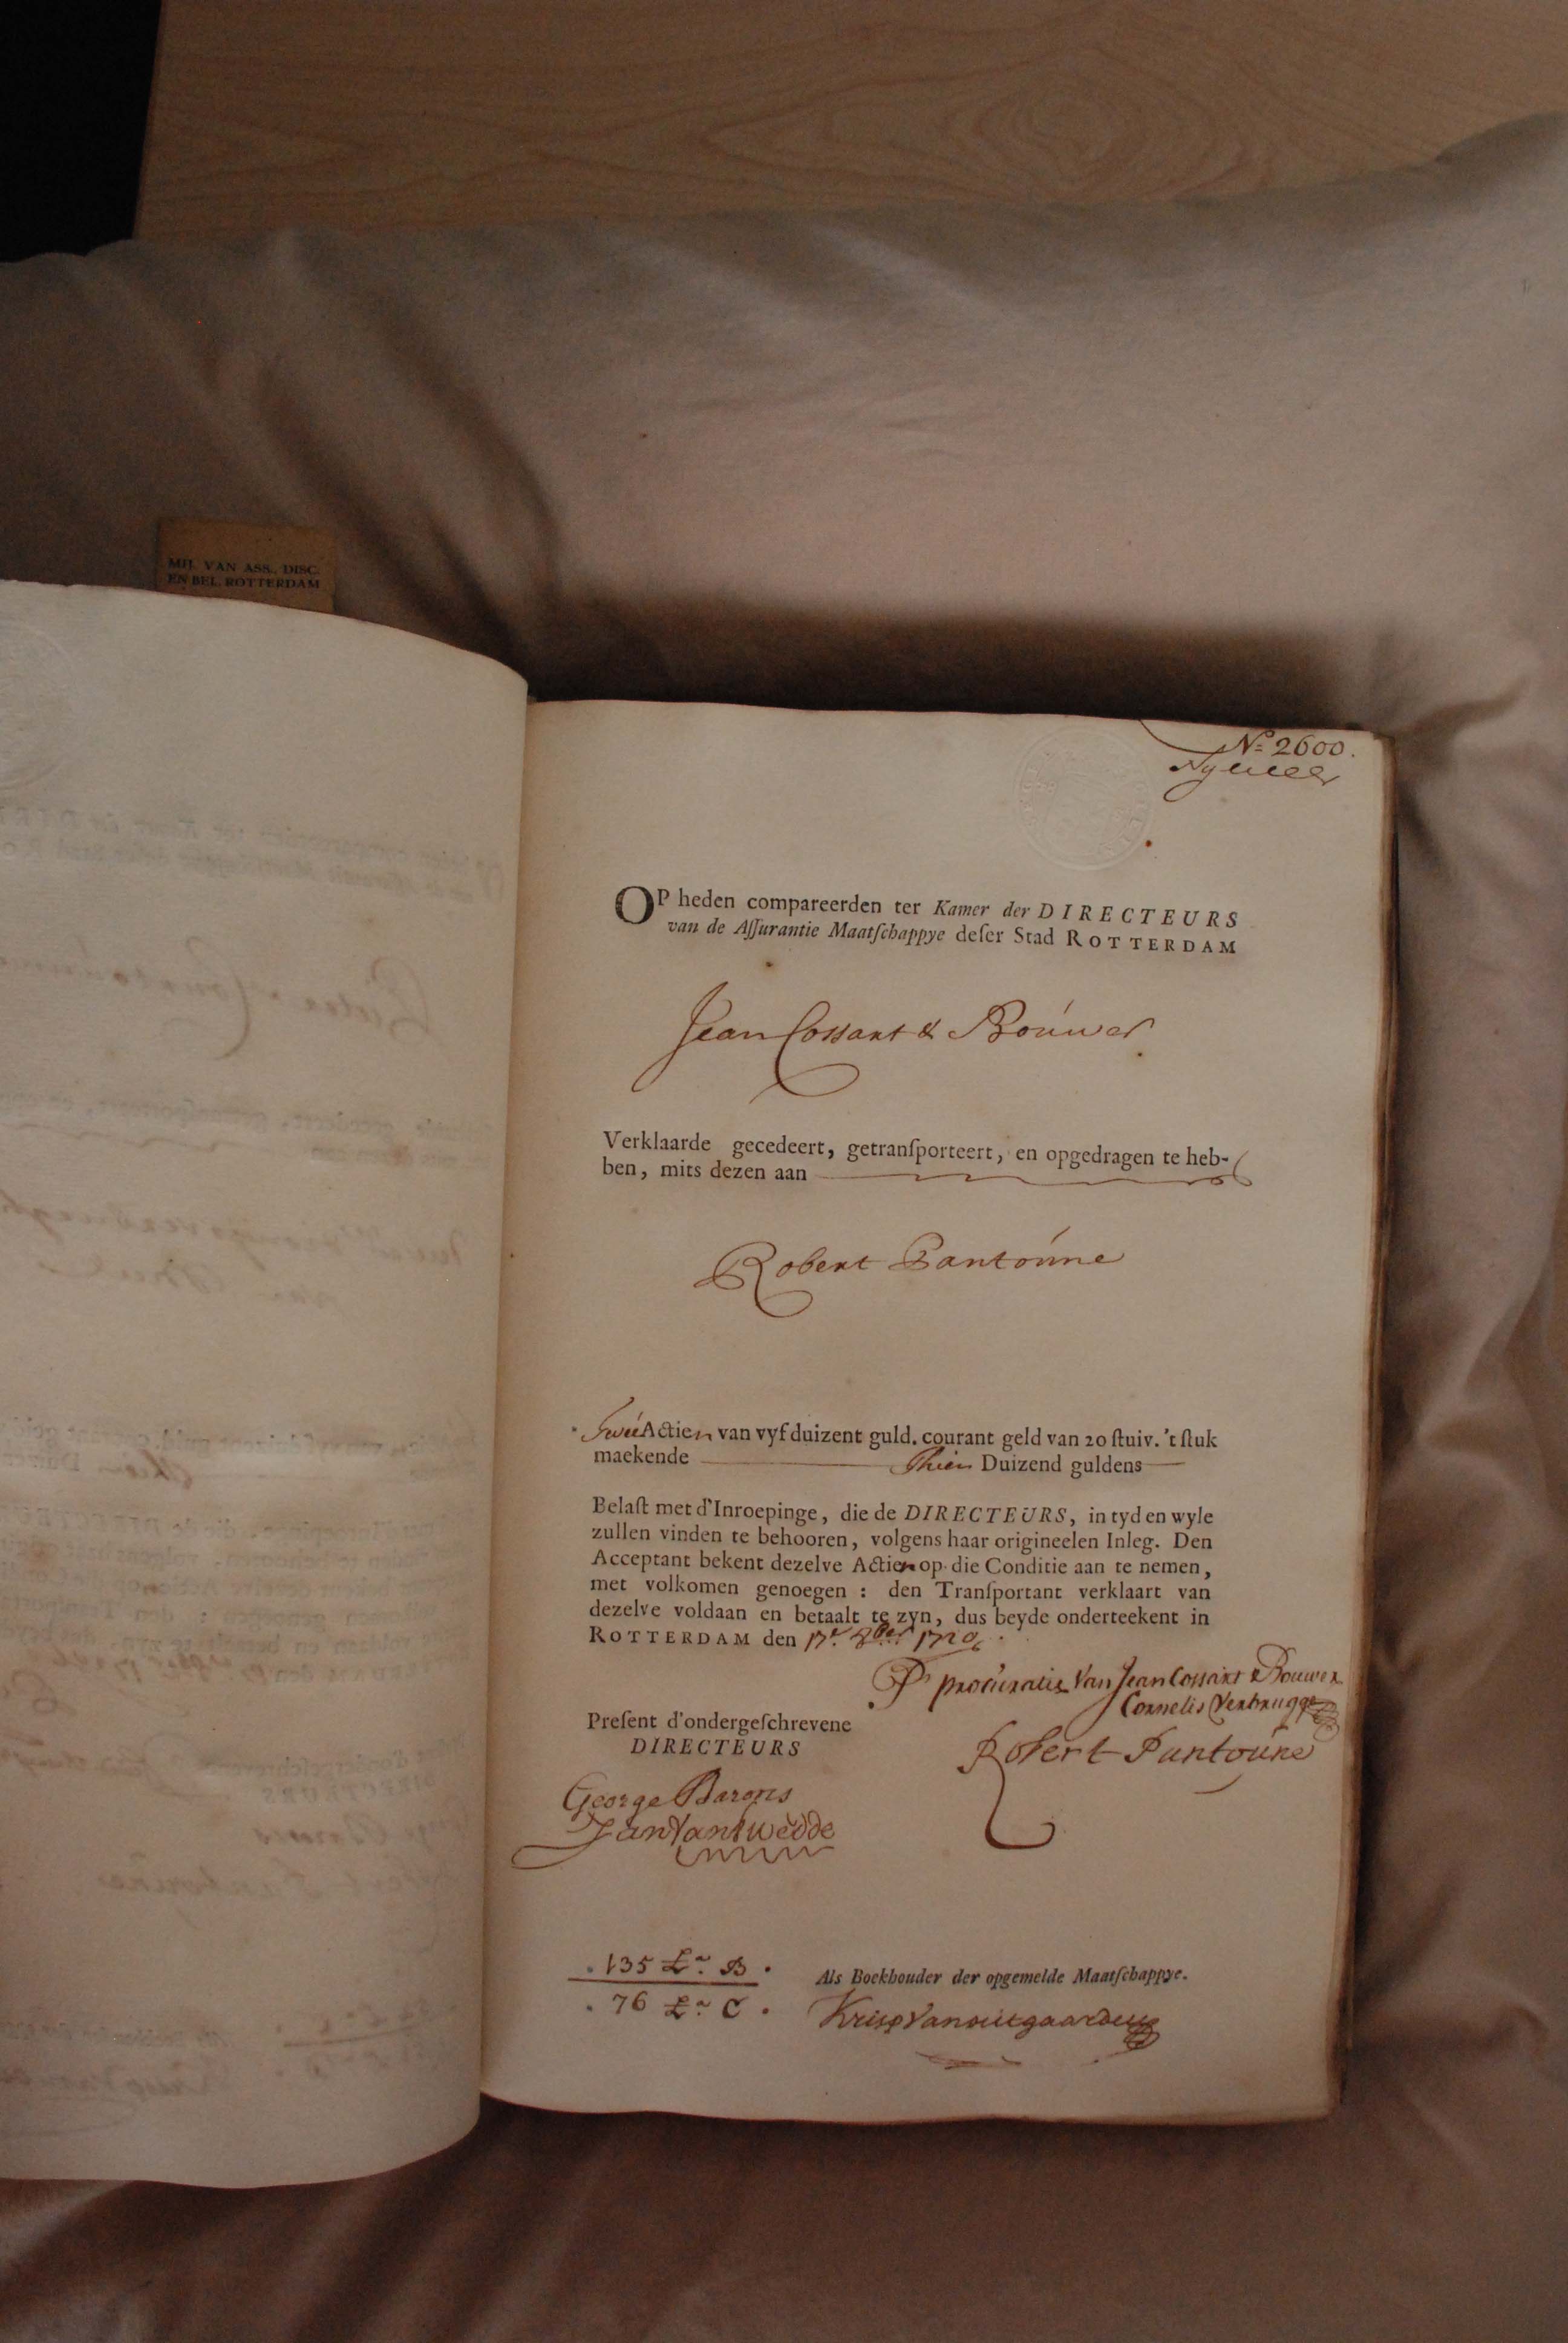 MIJ. VAN ASS., DISC.
EN BEL. ROTTERDAM
No 2600.
OP heden compareerden ter Kamer der DIRECTEURS
van de Aſſurantie Maatſchappye deſer Stad ROTTERDAM
Jean Cossart & Bouwer
Verklaarde gecedeert, getranſporteert, en opgedragen te heb-
ben, mits dezen aan
Robert Pantoúne
Twee Actien van vyf duizent guld. courant geld van 20 ſtuiv. 't ſtuk
maekende Thien Duizend guldens
Belaſt met d'Inroepinge, die de DIRECTEURS, in tyd en wyle
zullen vinden te behooren, volgens haar origineelen Inleg. Den
Acceptant bekent dezelve Actien op die Conditie aan te nemen,
met volkomen genoegen : den Tranſportant verklaart van
dezelve voldaan en betaalt te zyn, dus beyde onderteekent in
ROTTERDAM den 17e 8ber 1720
Pr procuratie Van Jean Cossart & Bouwer
Cornelis Verbrugge
Preſent d'ondergeſchrevene
DIRECTEURS
Robert Pantoúne
George Barons
Jan Van Twedde
135 Lr B
76 Lr C
Als Boekhouder der opgemelde Maatſchappye.
Krisp Vanoutgaarden